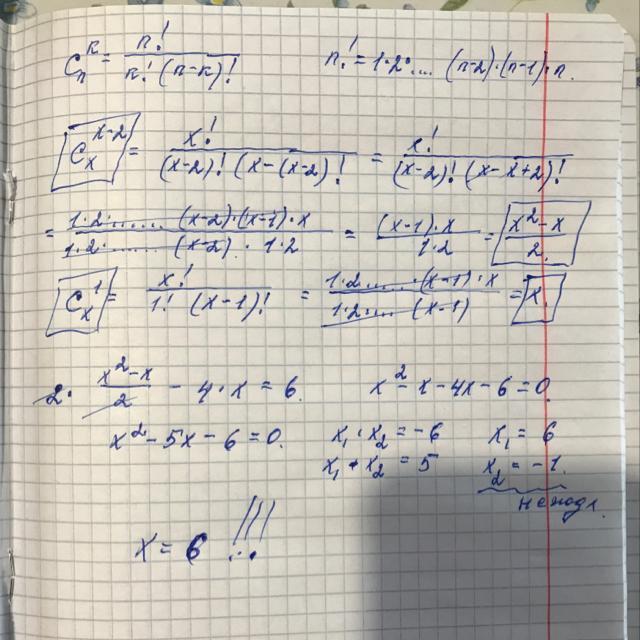 C_n^k = n! / k! (n-k)!    n! = 1·2·... (n-2)·(n-1)·n.
C_x^{x-2} = x! / (x-2)! (x-(x-2)! = x! / (x-2)! (x-x+2)!
= 1·2·...... (x-2)·(x-1)·x / 1·2·...... (x-2) · 1·2 = (x-1)·x / 1·2 = x²-x / 2.
C_x^1 = x! / 1! (x-1)! = 1·2..... (x-1)·x / 1·2..... (x-1) = x.
2· x²-x / 2 - 4·x = 6.    x²-x-4x-6=0.
x²-5x-6=0.    x₁·x₂ = -6    x₁ = 6
x₁+x₂ = 5    x₂ = -1.
не подх.
x = 6 !!!